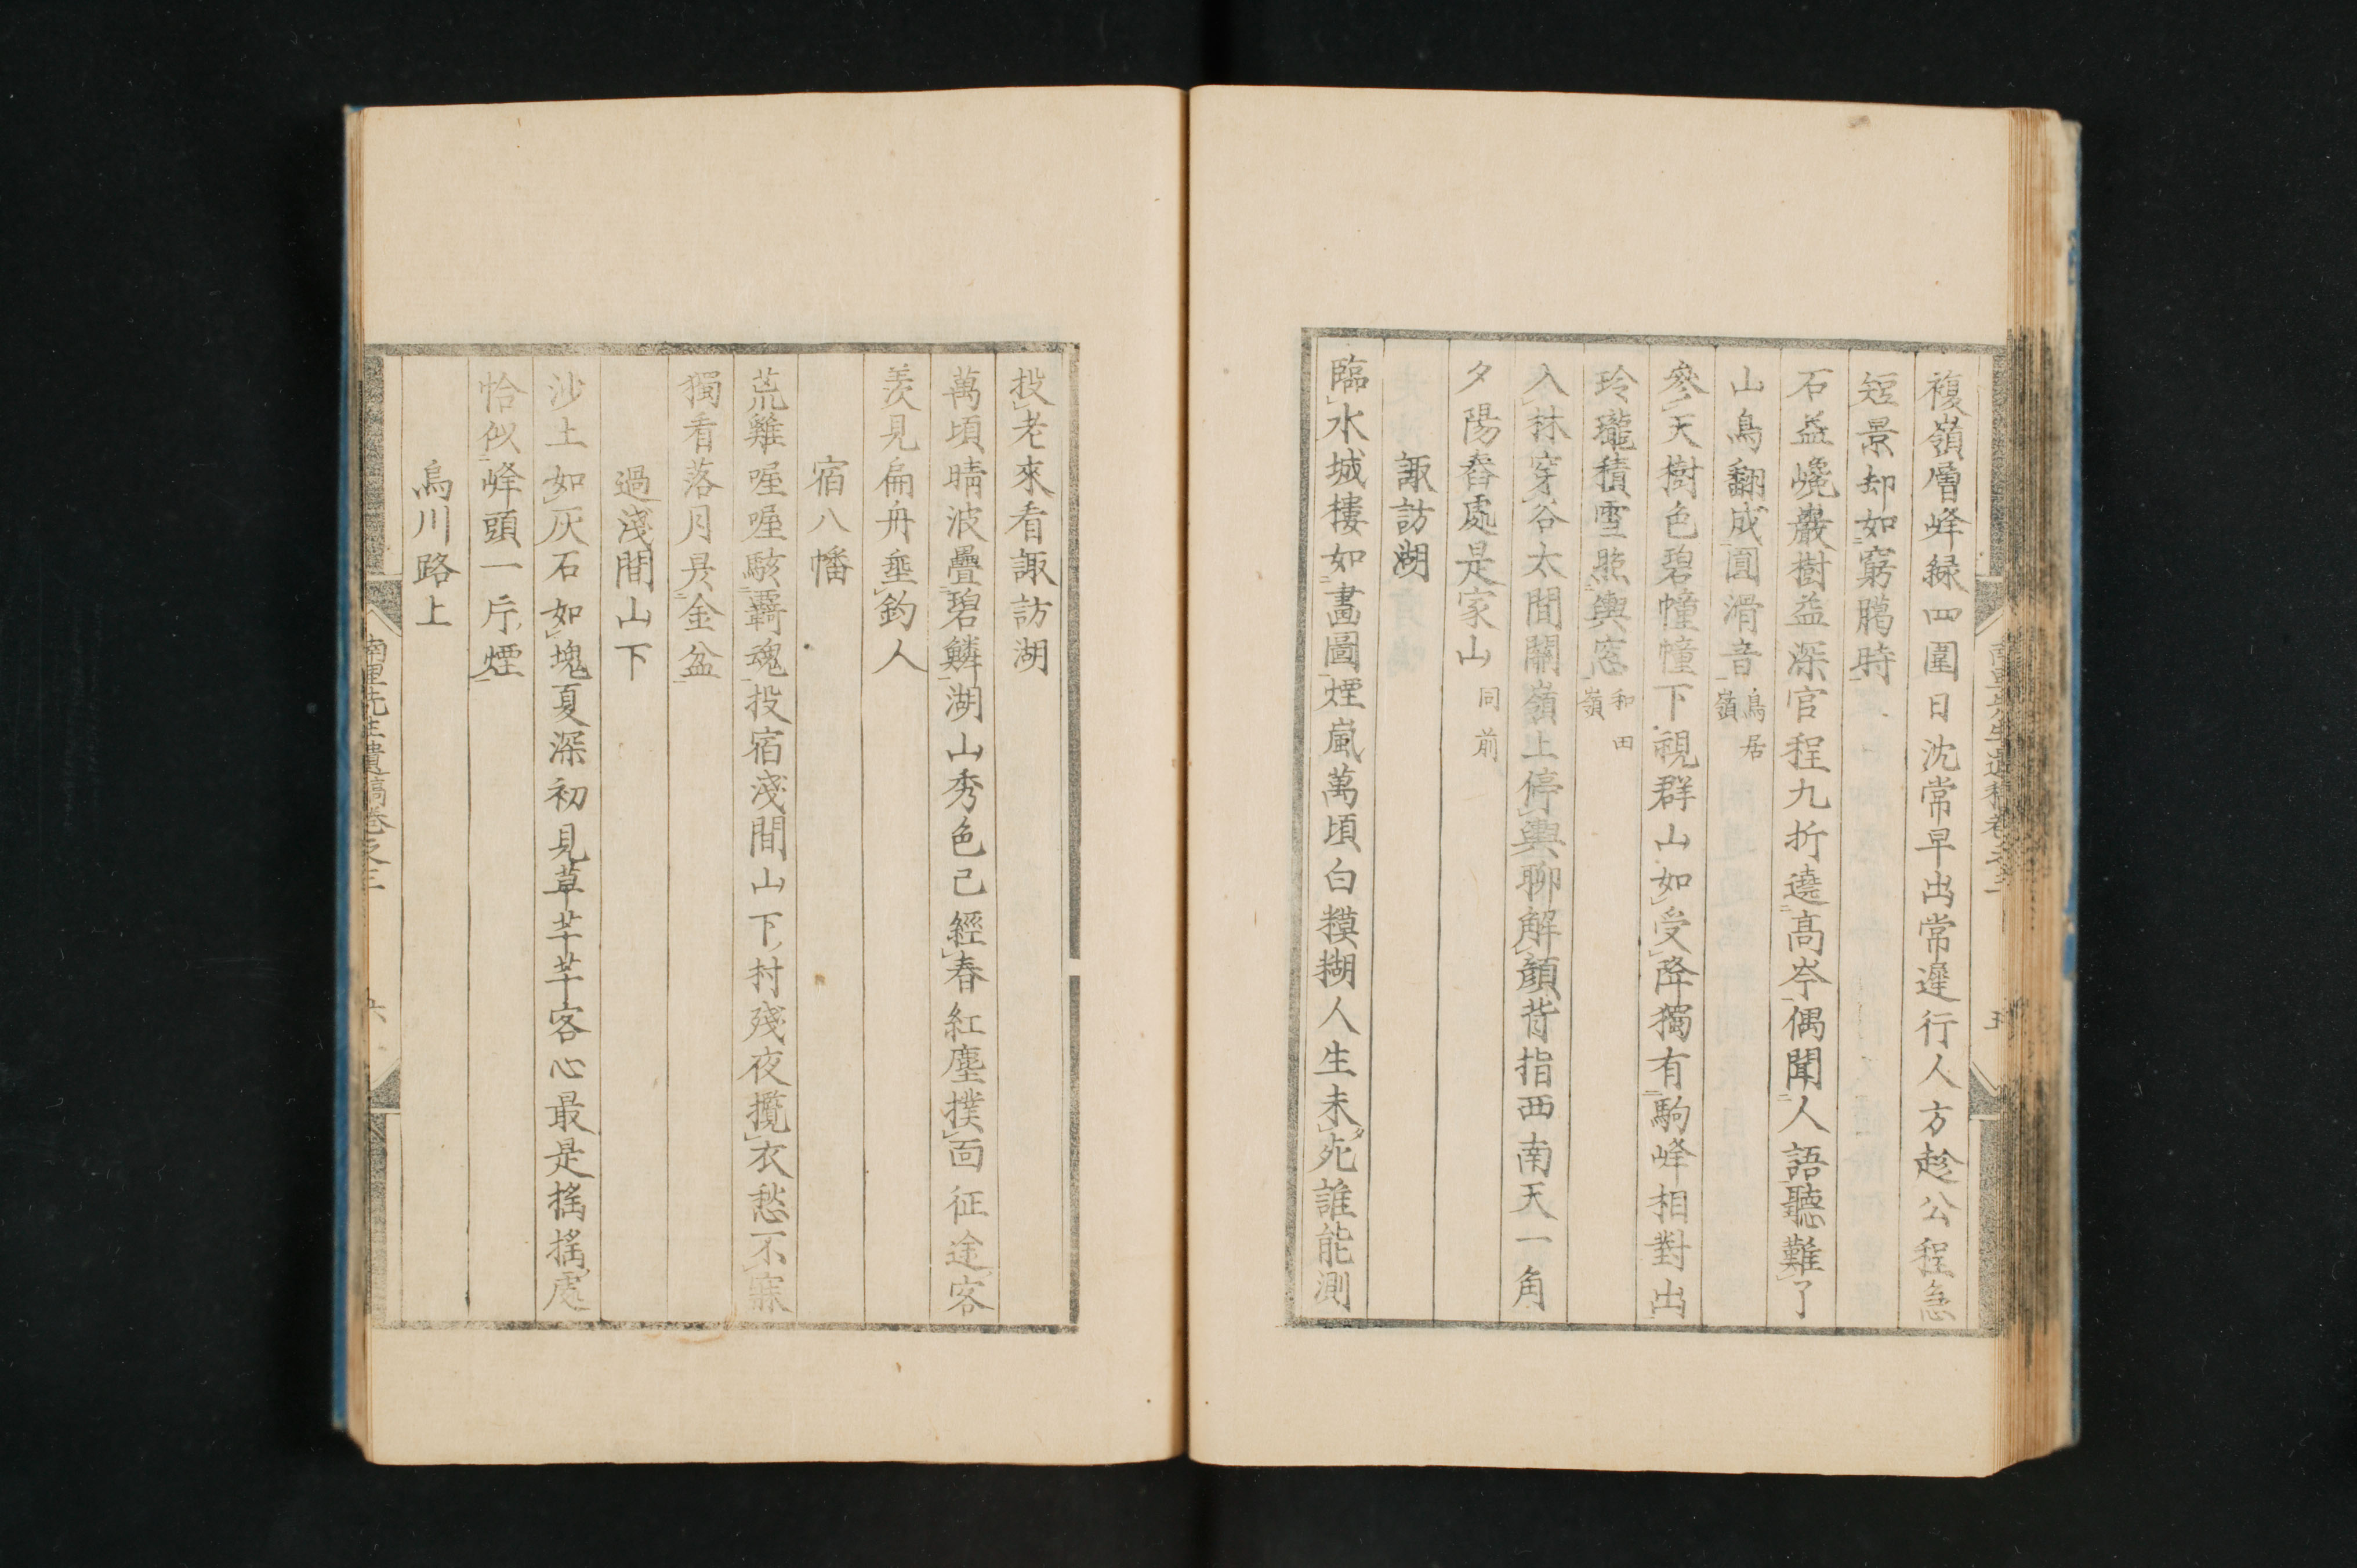 複嶺層峰緑四圍日沈常早出常遲行人方趁公程急
短景却如窮臈時
石益巉巖樹益深官程九折遶高岑偶聞人語聽難了
山鳥翻成圓滑音 鳥居嶺
參天樹色碧幢幢下視群山如受降獨有駒峰相對出
玲瓏積雪照輿窓 和田嶺
入林穿谷太間關嶺上停輿聊解顔背指西南天一角
夕陽舂處是家山 同前
諏訪湖
臨水城樓如畫圖煙嵐萬頃白糢糊人生未死誰能測
投老來看諏訪湖
萬頃晴波疊碧鱗湖山秀色已經春紅塵撲面征途客
羨見扁舟垂釣人
宿八幡
荒雞喔喔駭羇魂投宿淺間山下村殘夜攬衣愁不寐
獨看落月昃金盆
過淺間山下
沙土如灰石如塊夏深初見草芊芊客心最是搖搖處
恰似峰頭一片煙
烏川路上
南里先生遺稿卷之三 六